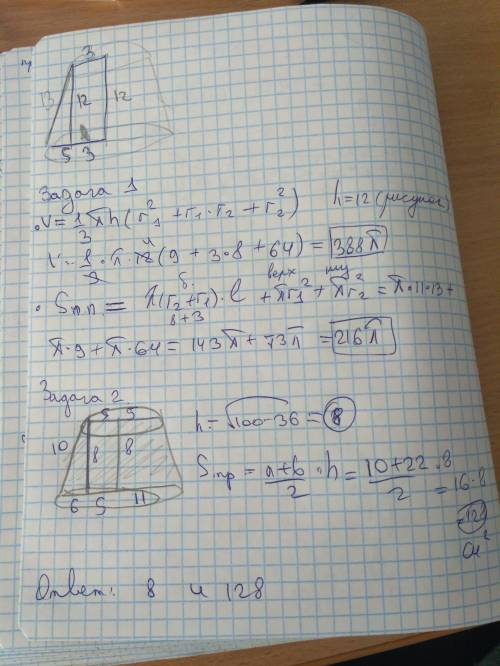 3
13 12 12
5 3
Задача 1
V = 1/3 πh(r₁² + r₁·r₂ + r₂²) h=12 (рисунок)
V = 1/3 · π · 12 4 (9 + 3·8 + 64) = 388π
Sтп = π(r₂+r₁)·l + πr₁² + πr₂² = π·11·13 +
б. верх
8+3
π·9 + π·64 = 143π + 73π = 216π
Задача 2
5 5
10 8 8
6 5 11
h = √100-36 = 8
Sтр = a+b/2 · h = 10+22/2 · 8 = 16·8
= 128
см²
Ответ: 8 и 128